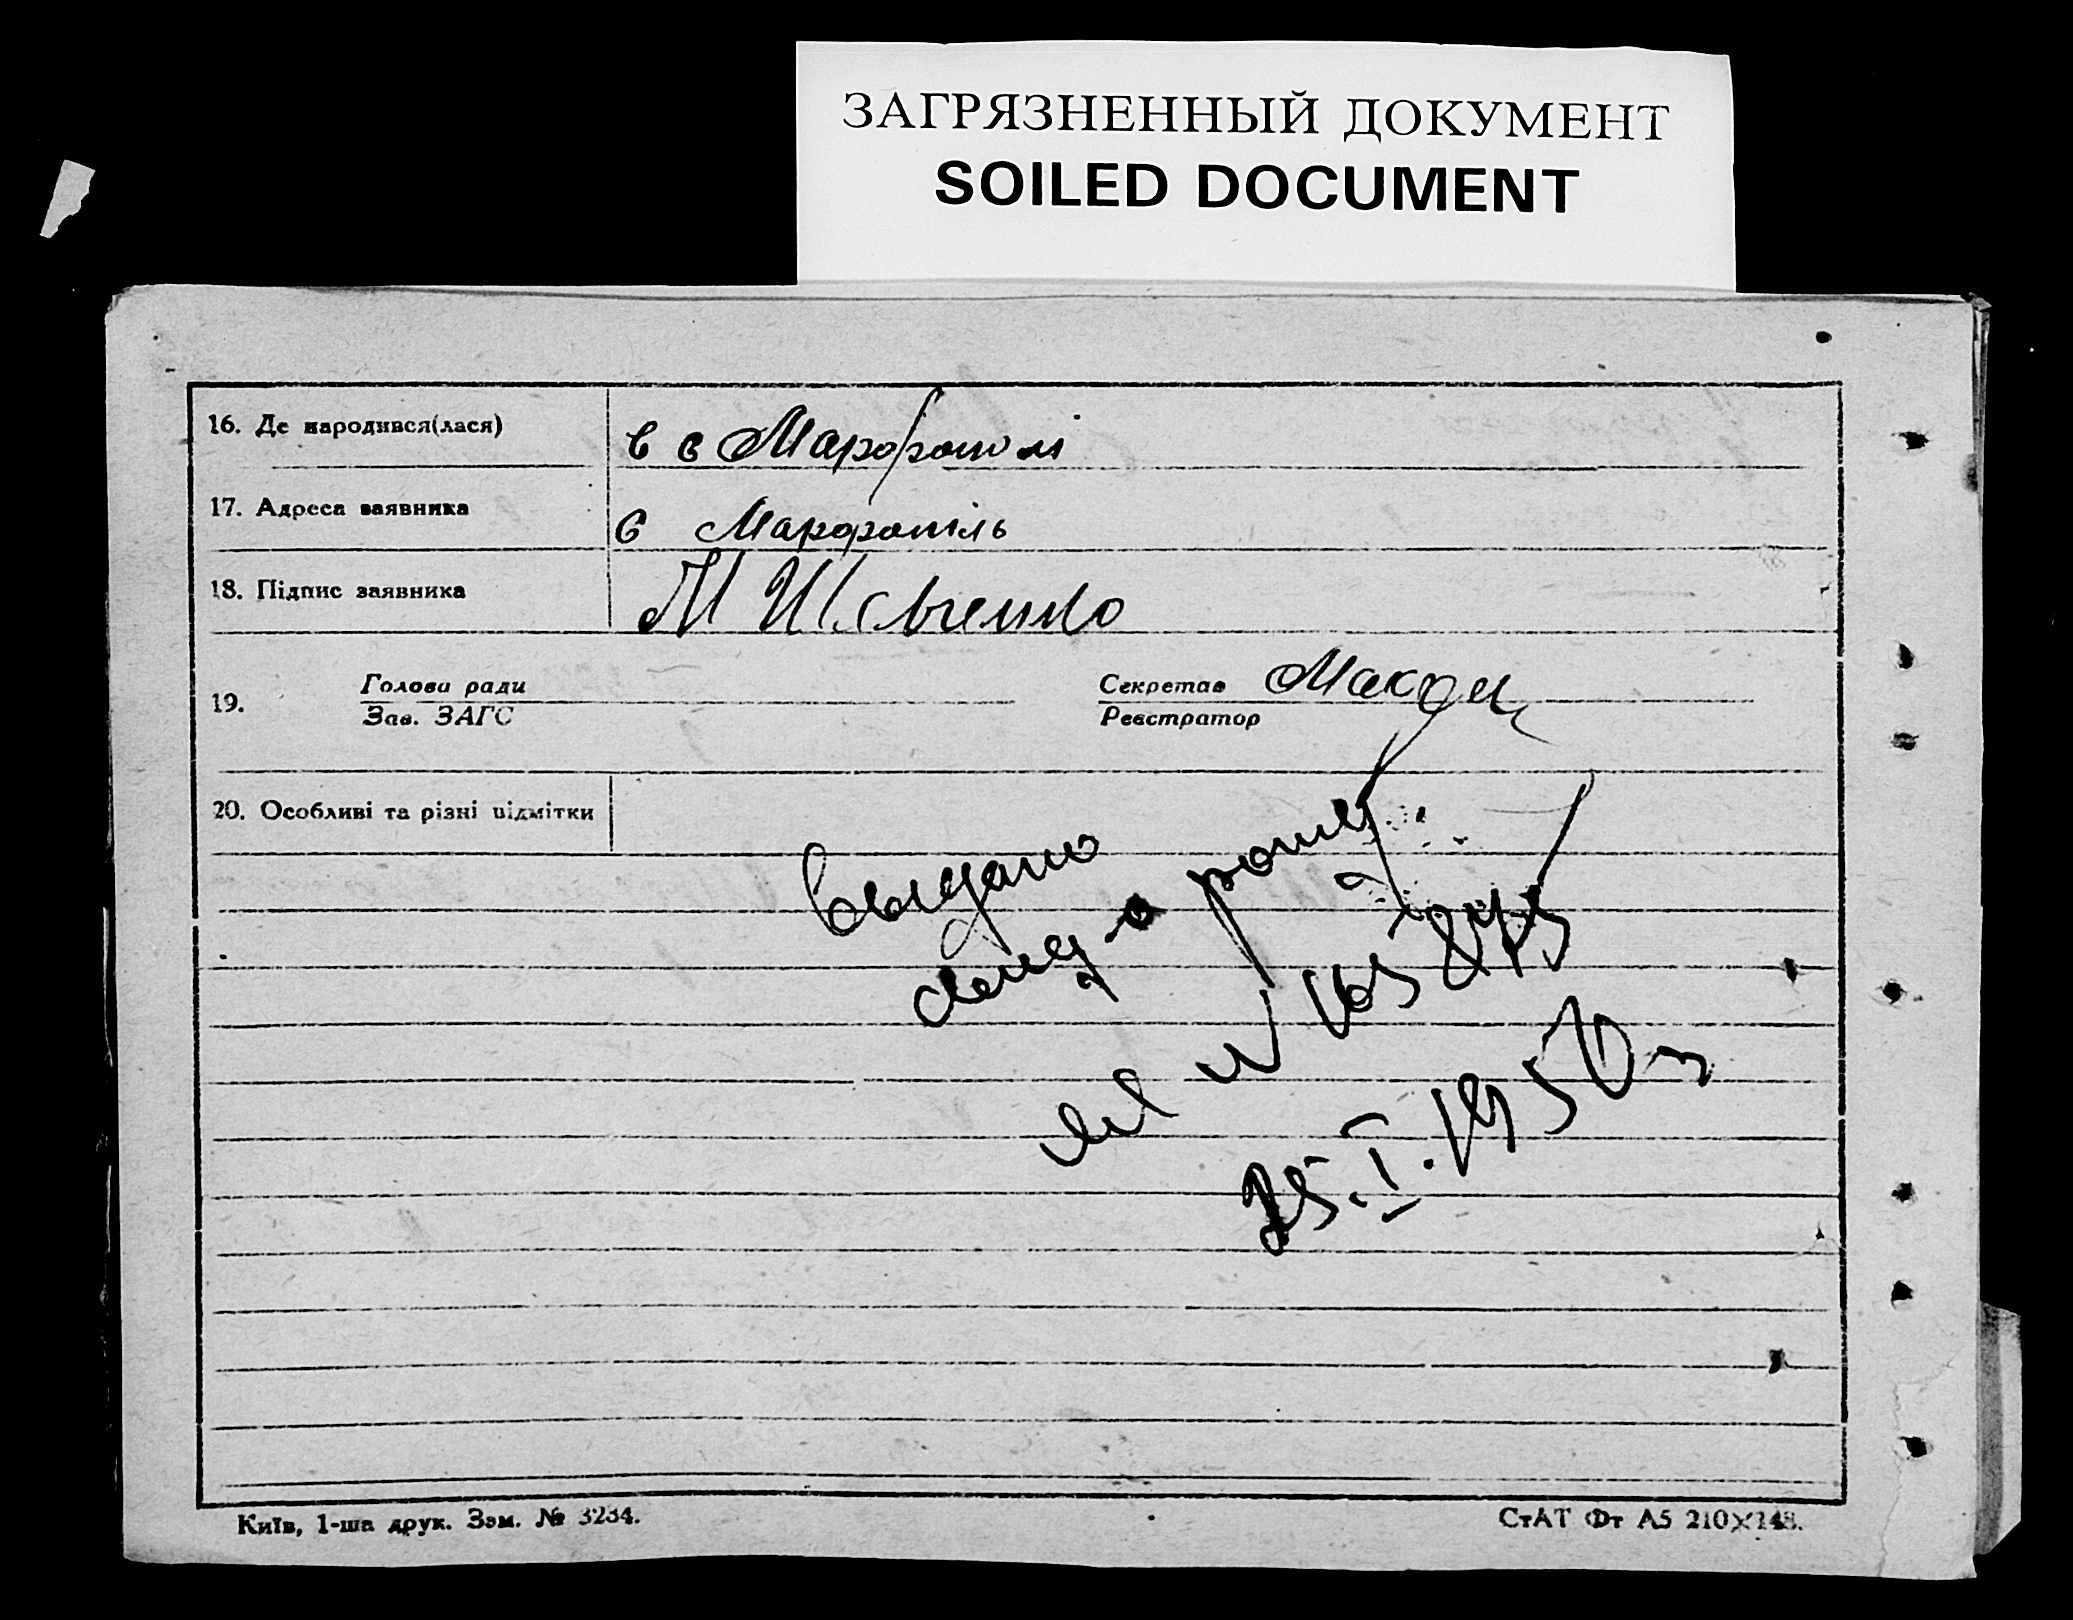 ЗАГРЯЗНЕННЫЙ ДОКУМЕНТ
SOILED DOCUMENT
16. Де народився(лася)
в с Марфополі
17. Адреса заявника
с Марфопіль
18. Підпис заявника
М Шевченко
19.
Голова ради
Зав. ЗАГС
Секретар
Реєстратор
20. Особливі та різні відмітки
Выдано
свид-о
25.I.1950г
Київ, 1-ша друк. Зам. № 3234.
СтАТ Фт А5 210×148.